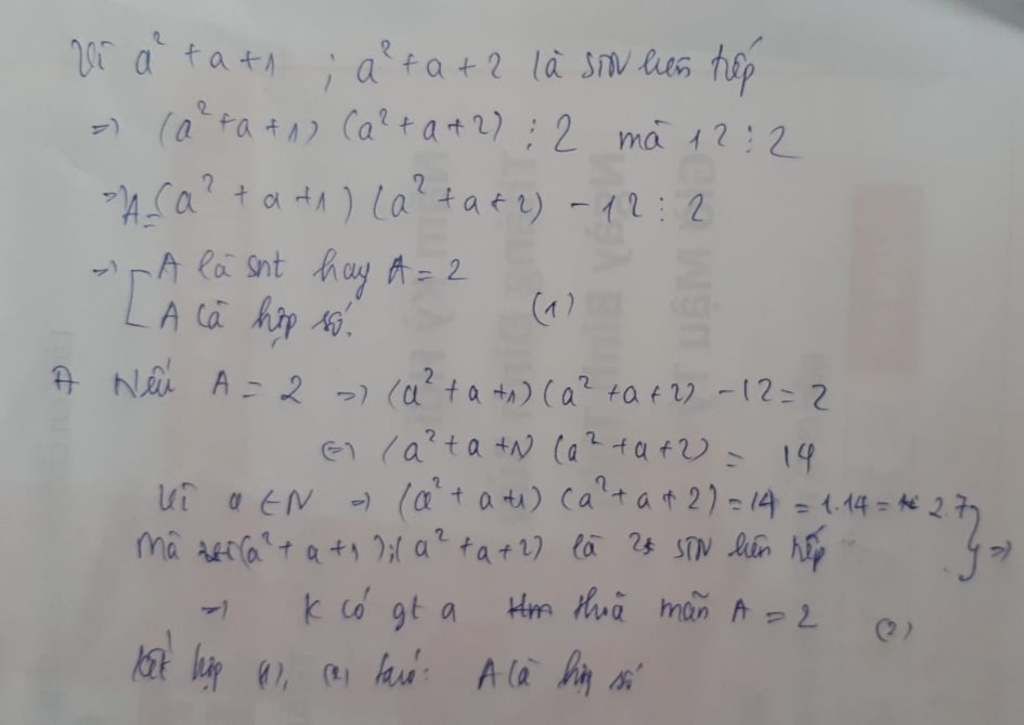 Vì a² + a + 1 ; a² + a + 2 là STN liên tiếp
=> (a² + a + 1) (a² + a + 2) ⋮ 2 mà 12 ⋮ 2
=> A = (a² + a + 1) (a² + a + 2) - 12 ⋮ 2
=> [ A là snt hay A = 2
A là hợp số. (1)
Nếu A = 2 => (a² + a + 1) (a² + a + 2) - 12 = 2
<=> (a² + a + 1) (a² + a + 2) = 14
Vì a ∈ N => (a² + a + 1) (a² + a + 2) = 14 = 1.14 = 2.7 } =>
Mà (a² + a + 1) ; (a² + a + 2) là 2 STN liên tiếp
=> K có gt a thoả mãn A = 2 (2)
Kết hợp (1), (2) : A là hợp số